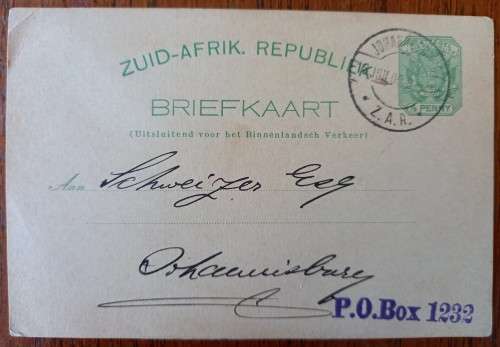 ZUID-AFRIK. REPUBLIEK.
½ PENNY
Z.A.R.
BRIEFKAART
(Uitsluitend voor het Binnenlandsch Verkeer)
Aan Schweizer Esq
Johannisburg
P.O.Box 1232